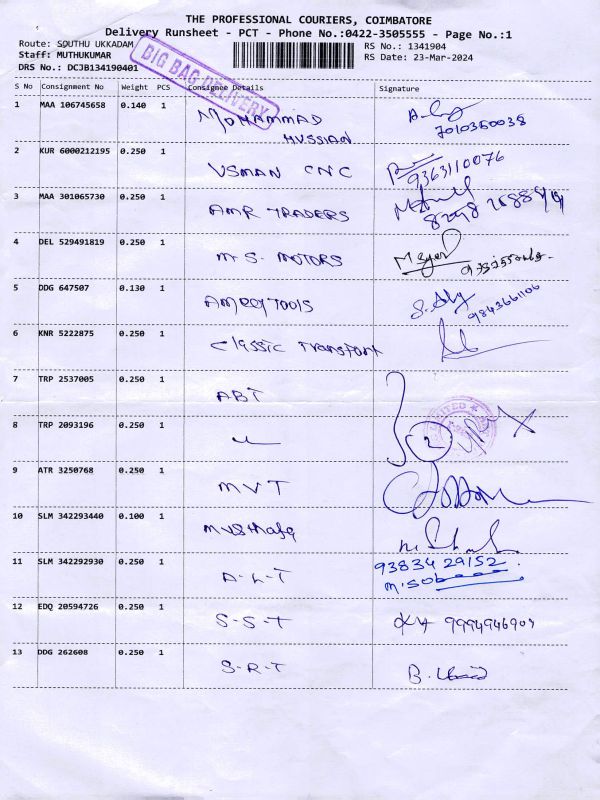 THE PROFESSIONAL COURIERS, COIMBATORE
Delivery Runsheet - PCT - Phone No.:0422-3505555 - Page No.:1
Route: SOUTHU UKKADAM
RS No.: 1341904
Staff: MUTHUKUMAR
RS Date: 23-Mar-2024
DRS No.: DCJB134190401
BIG BAG DELIVERY
S No Consignment No Weight PCS Consignee Details Signature
1 MAA 106745658 0.140 1 MOHAMMAD
HUSSIAN
7010360038
2 KUR 6000212195 0.250 1 USMAN CNC
9363110076
3 MAA 301065730 0.250 1 AMR TRADERS
4 DEL 529491819 0.250 1 M. S. MOTORS
5 DDG 647507 0.130 1
9843661106
6 KNR 5222875 0.250 1 Classic Transport
7 TRP 2537005 0.250 1 ABT
8 TRP 2093196 0.250 1
2
9 ATR 3250768 0.250 1 MVT
10 SLM 342293440 0.100 1
11 SLM 342292930 0.250 1 A-L-T
93834 29152
12 EDQ 20594726 0.250 1 S-S-T
13 DDG 262608 0.250 1 S-R-T